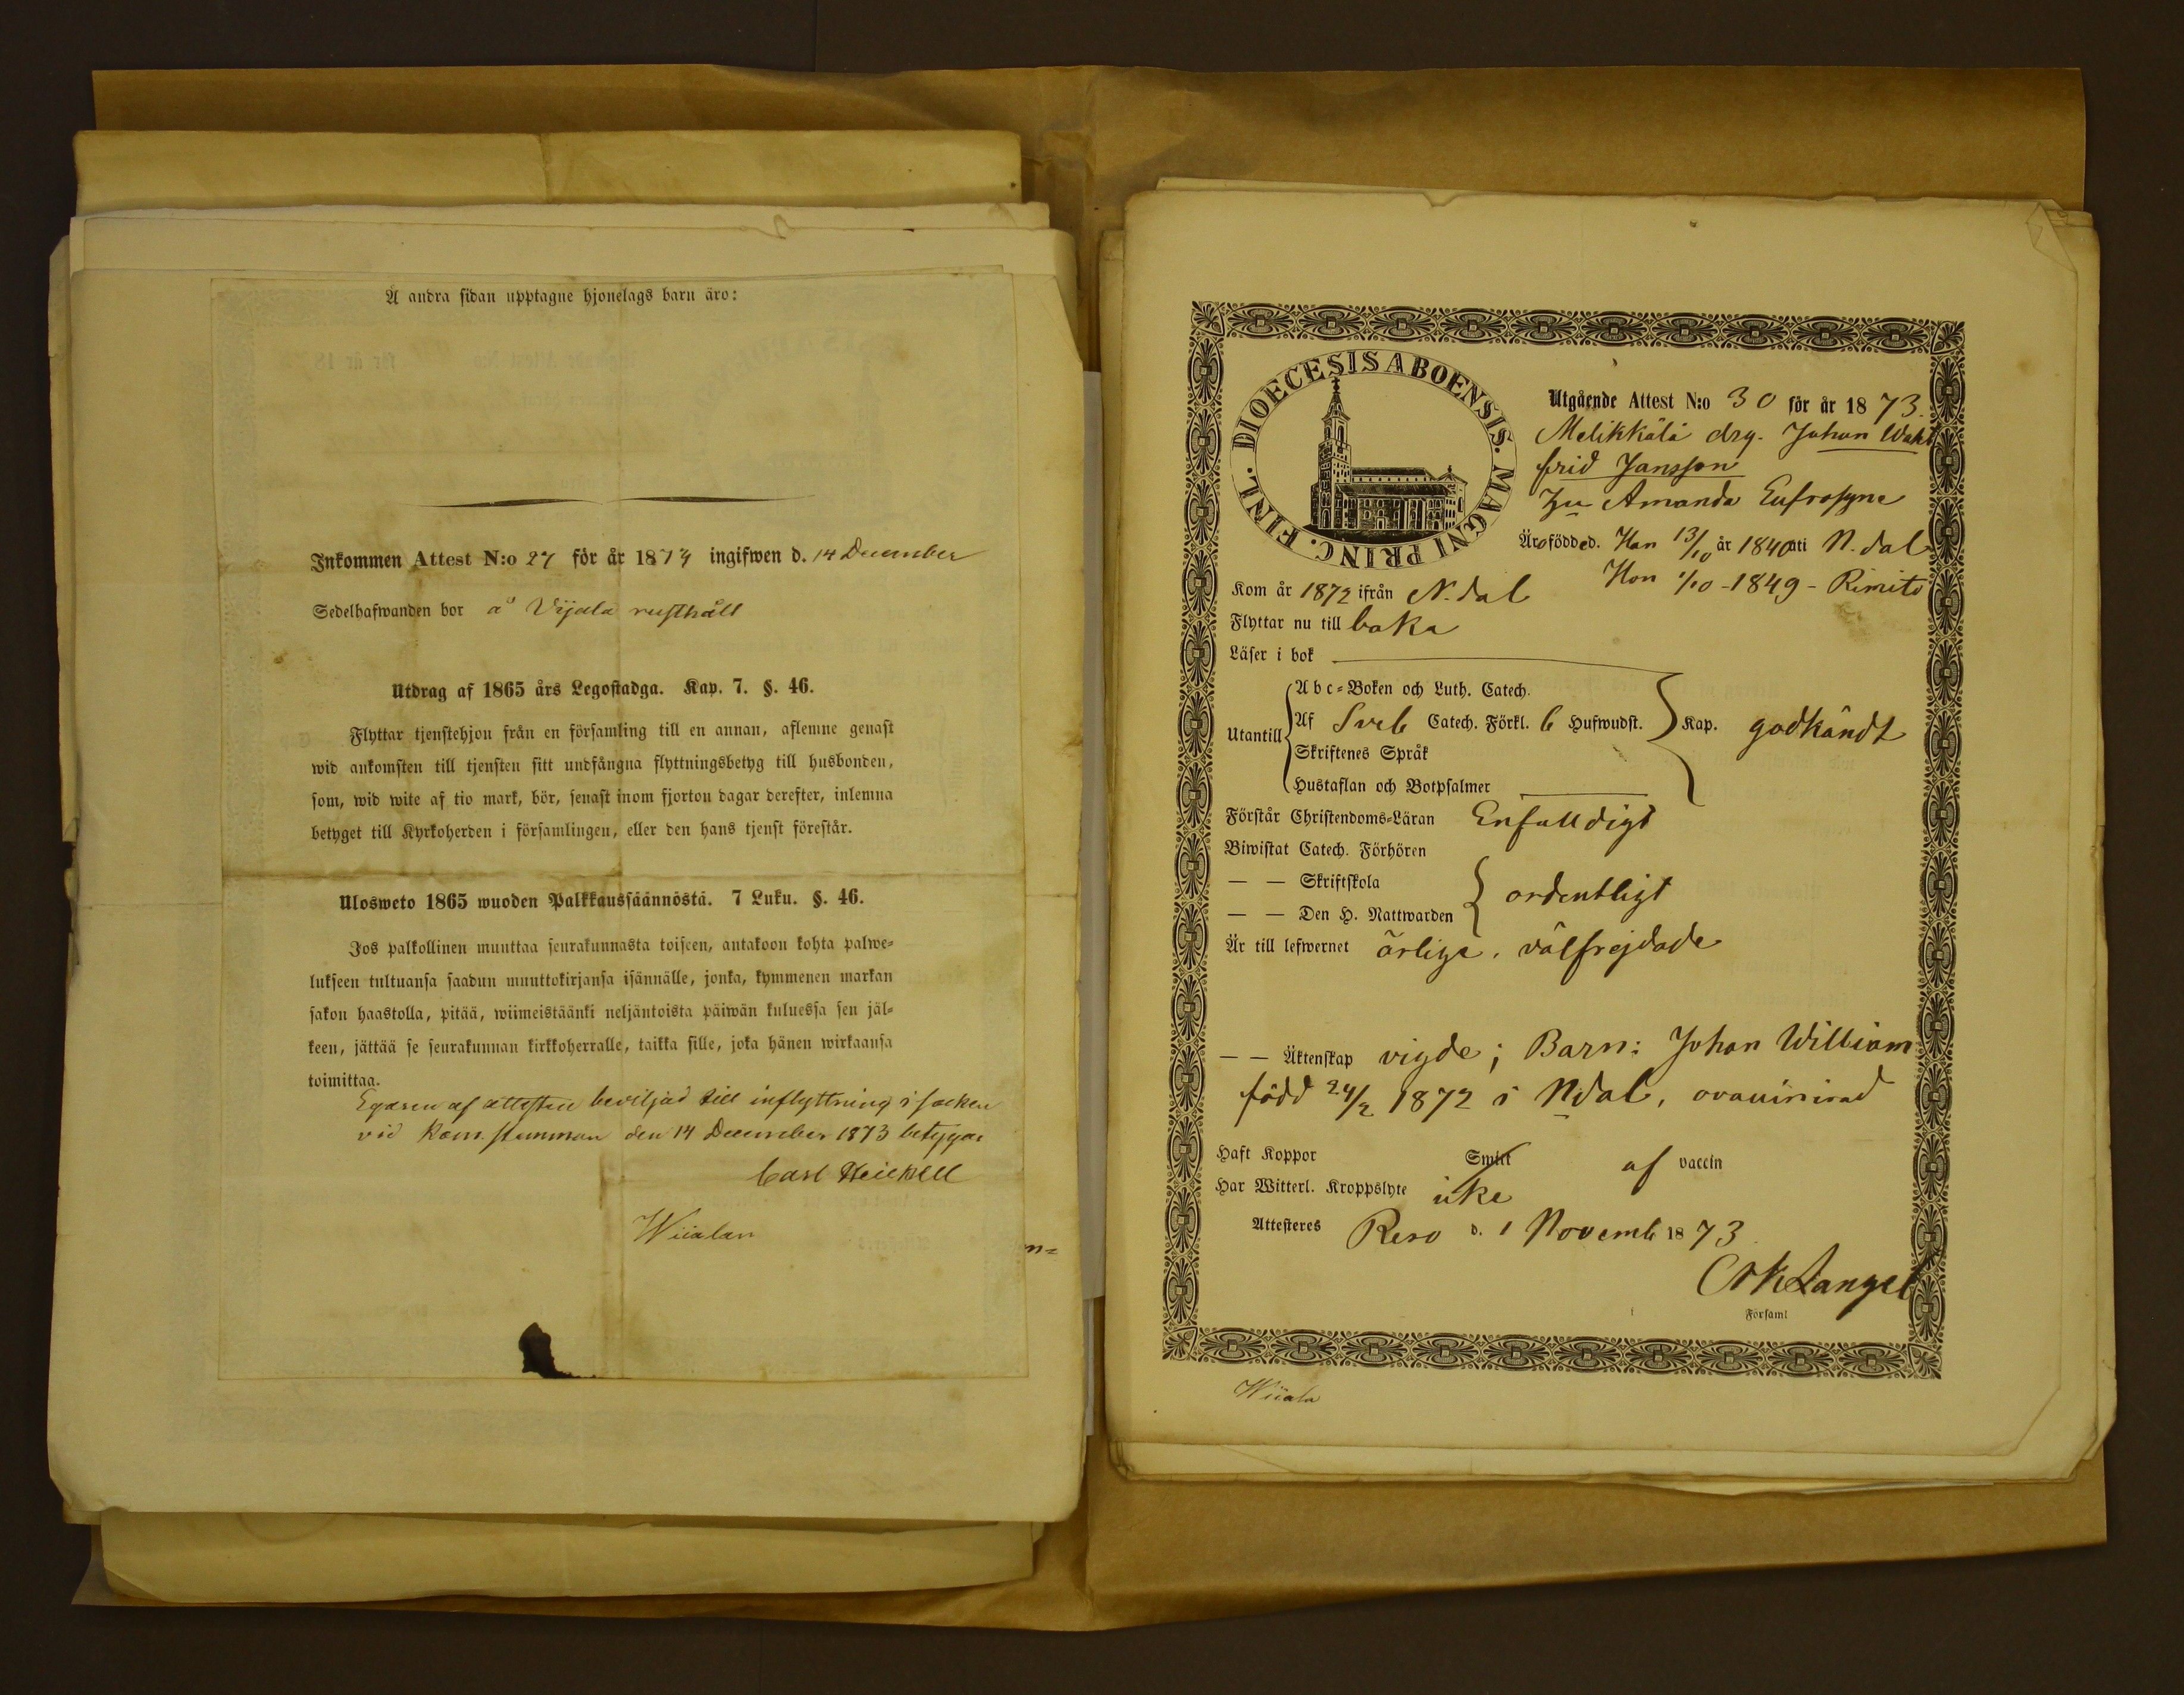 Å andra sidan upptagne hjonelags barn äro:
Inkommen Attest N:o 27 för år 1873 ingifwen d. 14 December
Sedelhafwanden bor å Vijala rusthåll
Utdrag af 1865 års Legostadga. Kap. 7. §. 46.
Flyttar tjenstehjon från en församling till en annan, aflemne genast
wid ankomsten till tjensten sitt undfångna flyttningsbetyg till husbonden,
som, wid wite af tio mark, bör, senast inom fjorton dagar derefter, inlemna
betyget till Kyrkoherden i församlingen, eller den hans tjenst förestår.
Ulosweto 1865 wuoden Palkkaussäännöstä. 7 Luku. §. 46.
Jos palkollinen muuttaa seurakunnasta toiseen, antakoon kohta palwe-
lukseen tultuansa saadun muuttokirjansa isännälle, jonka, kymmenen markan
sakon haastolla, pitää, wiimeistäänki neljäntoista päiwän kuluessa sen jäl-
keen, jättää se seurakunnan kirkkoherralle, taikka sille, joka hänen wirkaansa
toimittaa.
Egaren af attesten beviljad till inflyttning i socken
vid Kom. stämman den 14 December 1873 betygar
Carl Heickell
Wiialan
n=
DIOECESIS ABOENSIS. MAGNI PRINC. FINL.
Utgående Attest N:o 30 för år 1873.
Melikkälä drg. Johan Walt
frid Jansson
Hu Amanda Eufrosyne
Äro födde d. Han 13/10 år 1840 uti N.dal
Hon 1/10 - 1849 - Rimito
Kom år 1872 ifrån N.dal
Flyttar nu till baka
Läser i bok
Utantill
Abc-Boken och Luth. Catech.
Af Sveb Catech. Förkl. 6 Hufwudst. Kap. godkändt
Skriftenes Språk
Hustaflan och Botpsalmer
Förstår Christendoms-Läran Enfalldigt
Biwistat Catech. Förhören
— — Skriftskola
— — Den H. Nattwarden ordentligt
Är till lefwernet ärliga, välfrejdade
— — Äktenskap vigde; Barn: Johan William
född 24/2 1872 i Ndal, ovaccinirad
Haft Koppor Smitt af vaccin
Har Witterl. Kroppslyte icke
Attesteres Reso d. 1 Novemb 1873
Langel
Församl
Wiiala